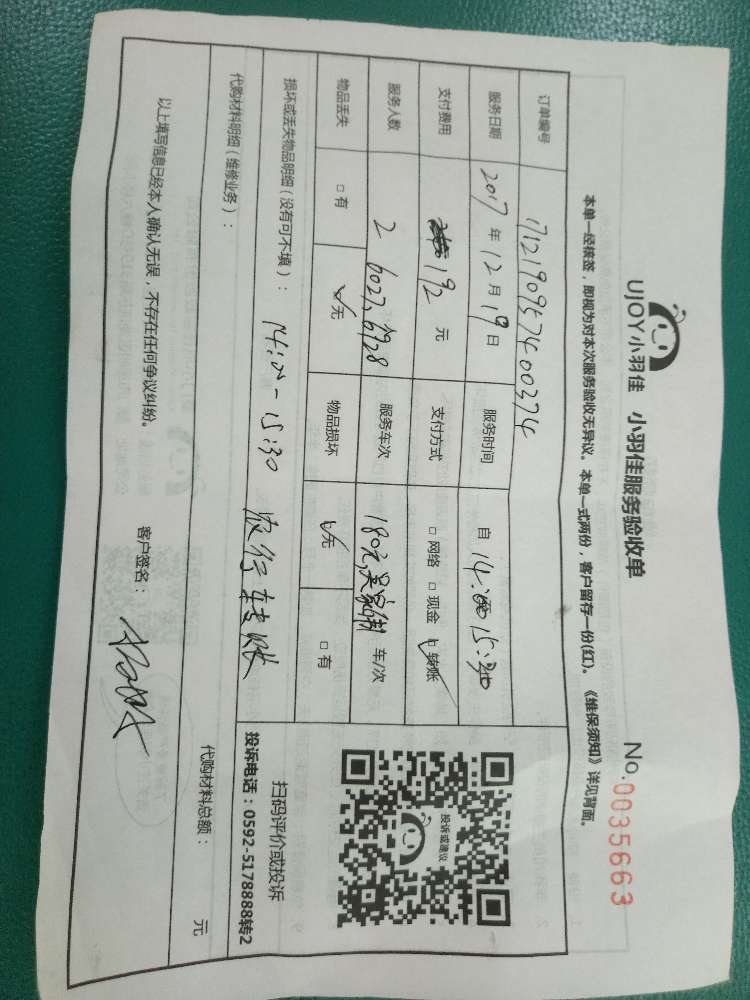 UJOY小羽佳 小羽佳服务验收单 No.0035663
本单一经核签，即视为对本次服务验收无异议。本单一式两份，客户留存一份(红)。《维保须知》详见背面。
订单编号 171219095740 00374
服务日期 2017年12月19日 服务时间 自 14:00 15:30
支付费用 192元 支付方式 □网络 □现金 □转账
服务人数 2 6027,6928 服务车次 180元, 车/次
物品丢失 □有 ☑无 物品损坏 ☑无 □有
损坏或丢失物品明细（没有可不填）： 14:00-15:30 农行转账
代购材料明细（维修业务）：
代购材料总额： 元
投诉或建议
扫码评价或投诉
投诉电话：0592-5178888转2
以上填写信息已经本人确认无误，不存在任何争议纠纷。 客户签名：